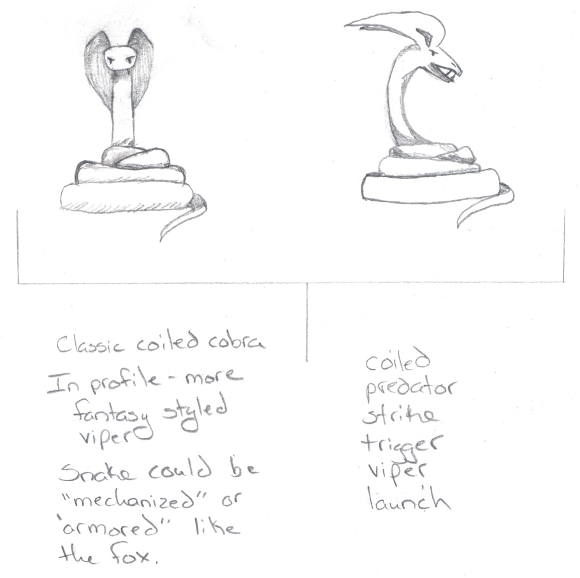 Classic coiled cobra
In profile - more
fantasy styled
viper
Snake could be
"mechanized" or
"armored" like
the fox.
coiled
predator
strike
trigger
viper
launch